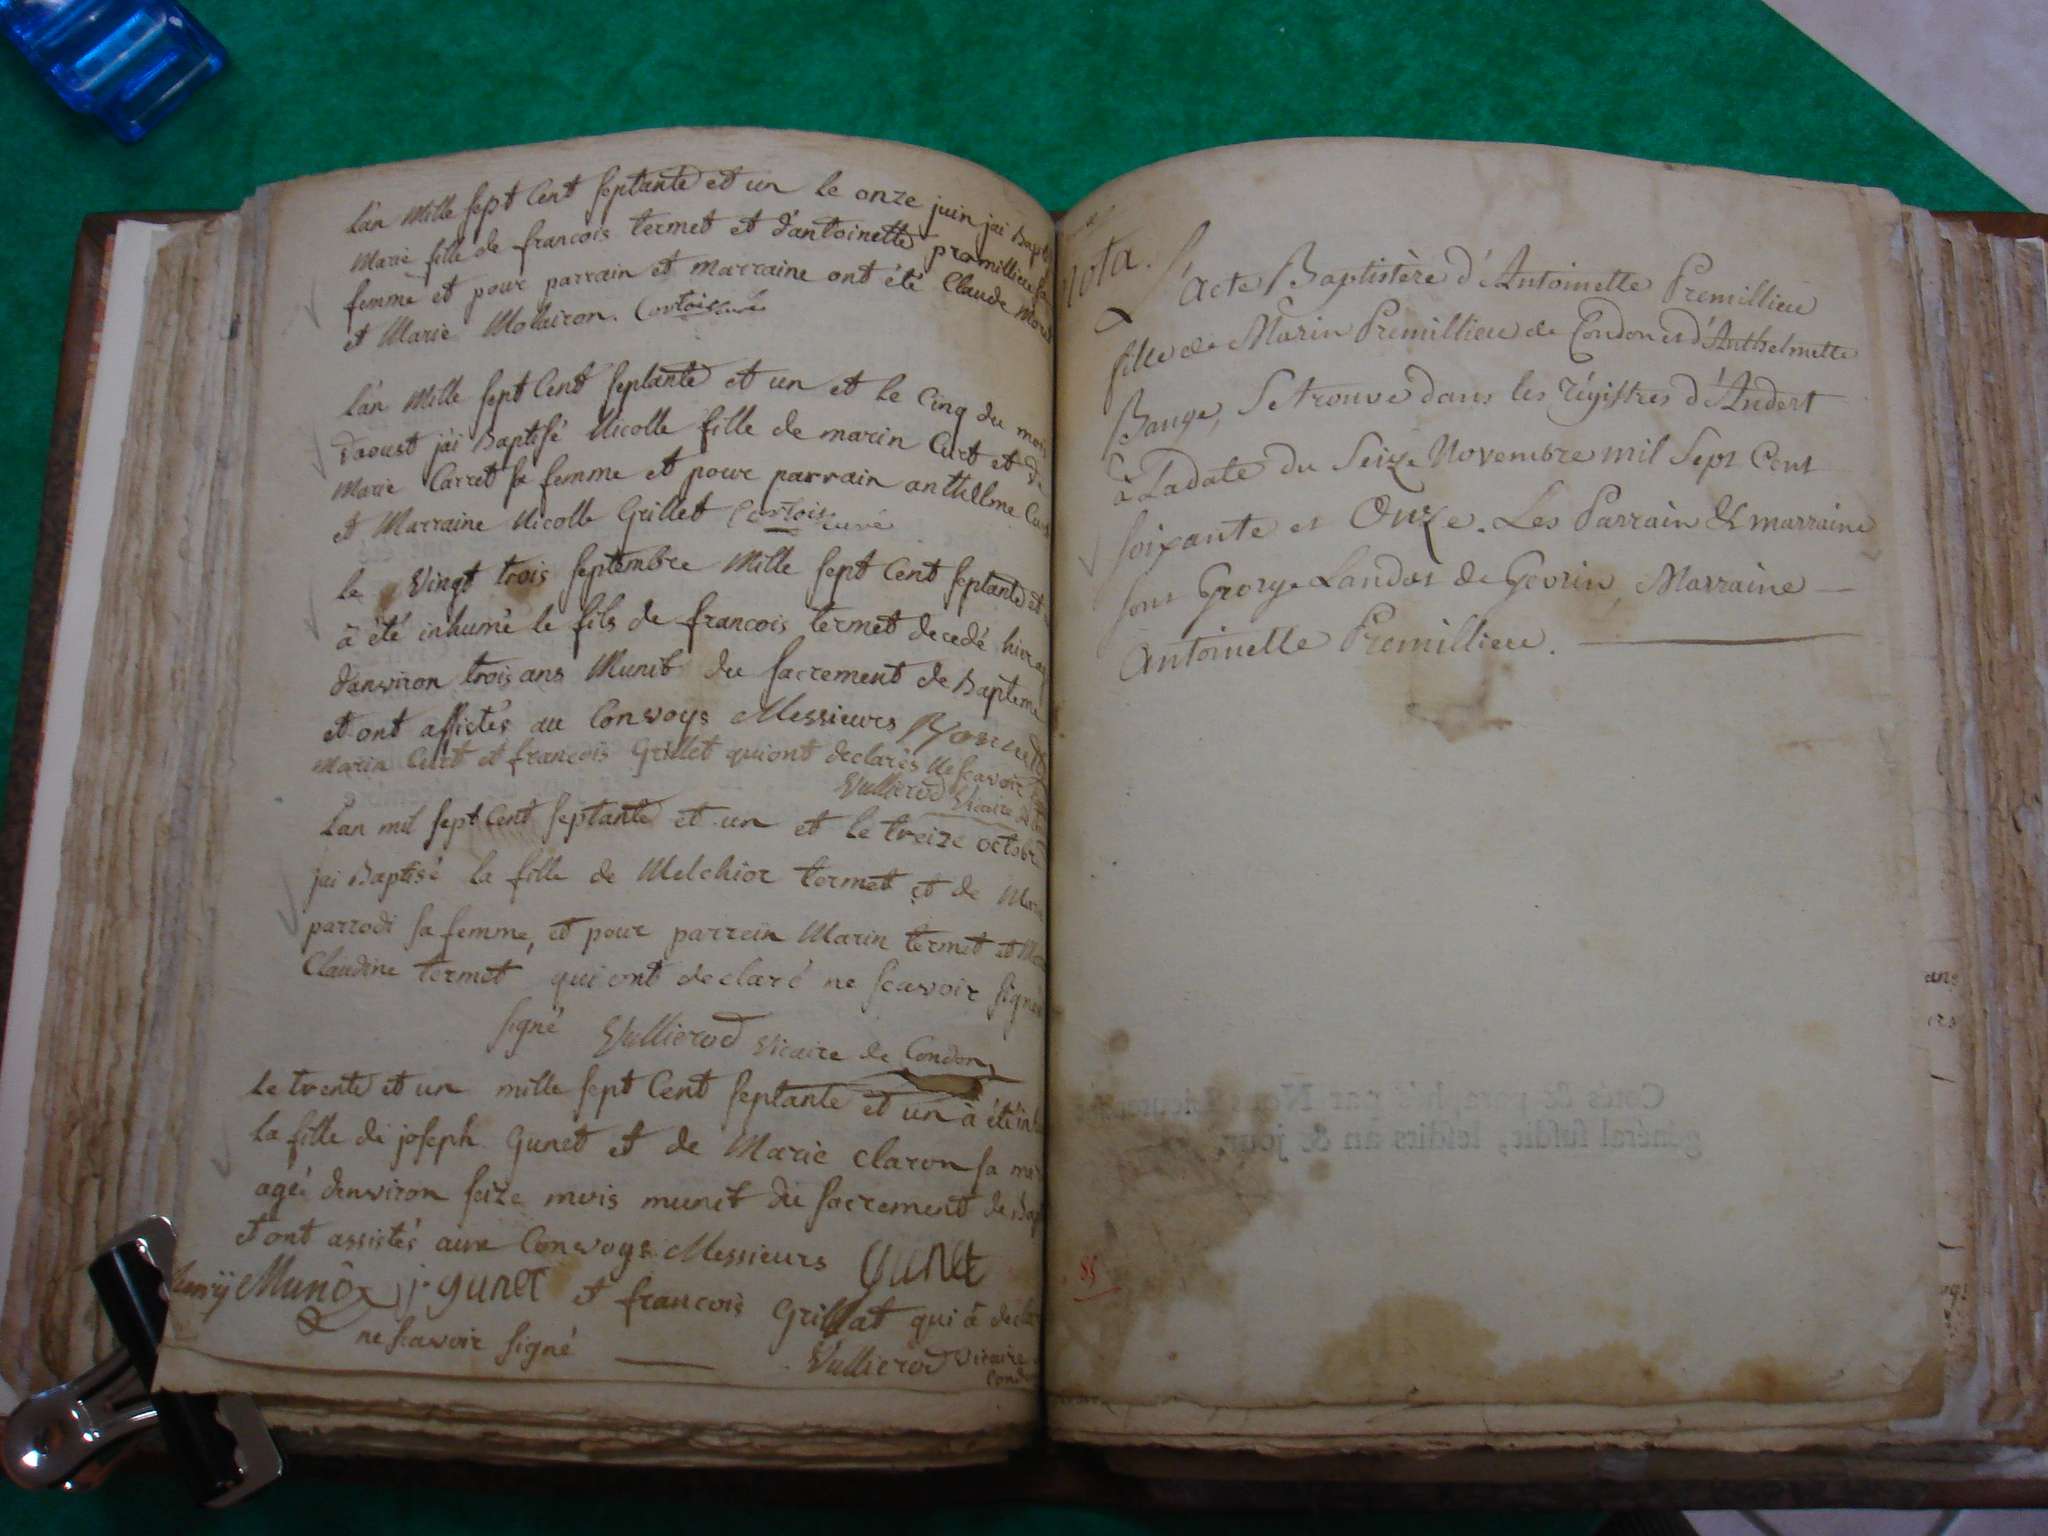 Lan Mille sept Cent septante et un le onze juin jai Bapt
Marie fille de francois termet et d'antoinette premillieu sa
femme et pour parrain et marraine ont été Claude
et Marie Mollairon. Cortois curé
Lan Mille sept Cent septante et un et le Cinq du moi
daoust jai Baptisé Nicolle fille de marin Curt et de
Marie Carret sa femme et pour parrain anthelme Cur
et Marraine Nicolle Grillet Cortois curé
le Vingt trois septembre Mille sept Cent septante et
à été inhumé le fils de francois termet decedé hier
d'environ trois ans Munit du sacrement de Bapteme
et ont assistés au Convoys Messieurs
marin Curt et francois Grillet qui ont declarés ne scavoir
Vullierod Vicaire de
Lan mil sept Cent septante et un et le treize octobre
jai Baptisé la fille de Melchior termet et de Marie
parrodi sa femme, et pour parrein Marin termet et
Claudine termet qui ont declaré ne scavoir signé
signé Vullierod Vicaire de Condon
Le trente et un mille sept Cent septante et un à été in
la fille de joseph Gunet et de Marie Claron sa
agée denviron seize mois munit du sacrement de Bap
et ont assistés aux Convoys Messieurs Gunet
Munô j. gunet et francois Grillat qui à decla
ne scavoir signé Vullierod Vicaire
Condon
Nota. L'acte Baptistère d'Antoinette Premillieu
fille de Marin Premillieu de Condon et d'Anthelmette
Bauge, se trouve dans les régistres d'Andert
à La date du Seize Novembre mil Sept Cent
soixante et Onze. Les Parrain & marraine
sont George Landos de Gevrin, Marraine
Antoinette Premillieu.
ans
Cotés & paraphés par Nous Lieutenant
général susdit, lesdits an & jour.
85